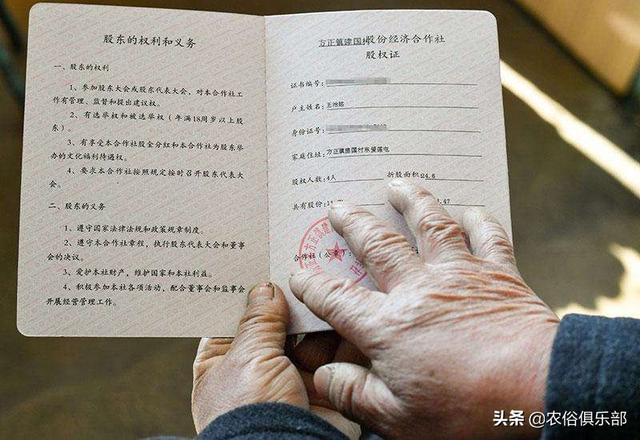 股东的权利和义务
一、股东的权利
1、参加股东大会或股东代表大会，对本合作社工
作有管理、监督和提出建议权。
2、有选举权和被选举权（年满18周岁以上股
东）。
3、有享受本合作社股金分红和本合作社为股东举
办的文化福利待遇权。
4、要求本合作社按照规定按时召开股东代表大
会。
二、股东的义务
1、遵守国家法律法规和政策规章制度。
2、遵守本合作社章程，执行股东代表大会和董事
会的决议。
3、爱护本社财产，维护国家和本社利益。
4、积极参加本社各项活动，配合董事会和监事会
开展经营管理工作。
方正镇建国村股份经济合作社
股权证
证书编号：
户主姓名：
身份证号：
家庭住址：方正镇建国村东爱莲屯
股权人数：4人 折股面积24.6
共有股份：
合作社（公章）
头条 @农俗俱乐部